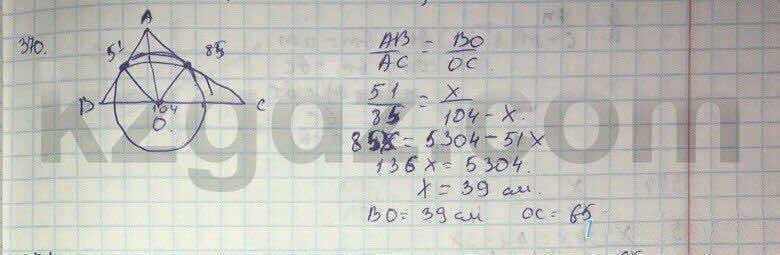 370.
A
51
85
B
104
C
O.
AB/AC = BO/OC.
51/85 = x/104-x.
85x = 5304-51x
136x = 5304.
x = 39 см.
BO = 39 см OC = 65
kzgdz.com